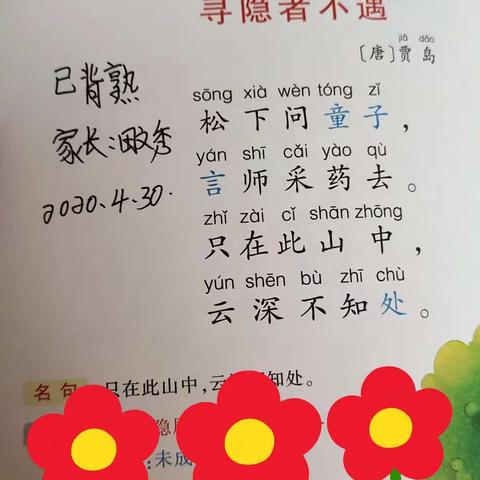 寻隐者不遇
jiǎ dǎo
〔唐〕贾岛
已背熟
家长:
2020.4.30.
sōng xià wèn tóng zǐ
松下问童子，
yán shī cǎi yào qù
言师采药去。
zhǐ zài cǐ shān zhōng
只在此山中，
yún shēn bù zhī chù
云深不知处。
名句
只在此山中,云
知处。
隐
:未成